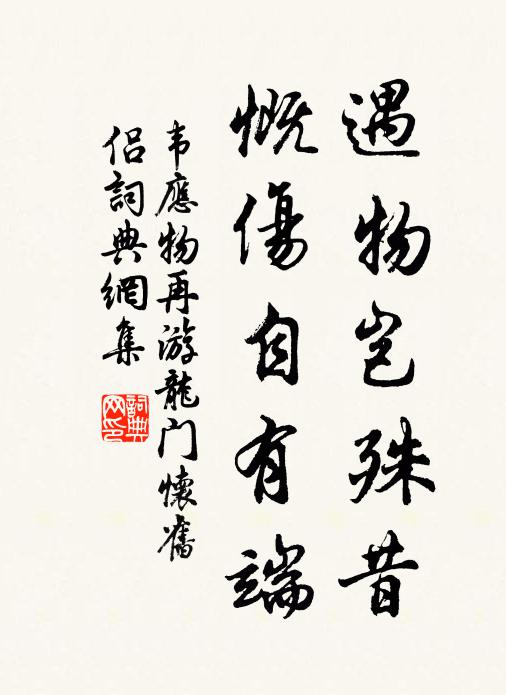 遇物岂殊昔
慨傷自有端
韦應物再游龍门懷舊
侣詞典網集
詞典网印